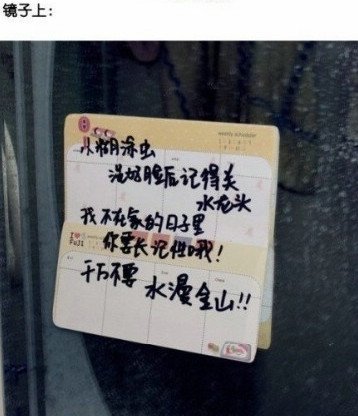 镜子上：
weekly scheduler
小糊涂虫
洗好脸后记得关
水龙头
我不在家的日子里
你要长记性哦！
I ❤
FUJI
千万不要
水漫金山!!